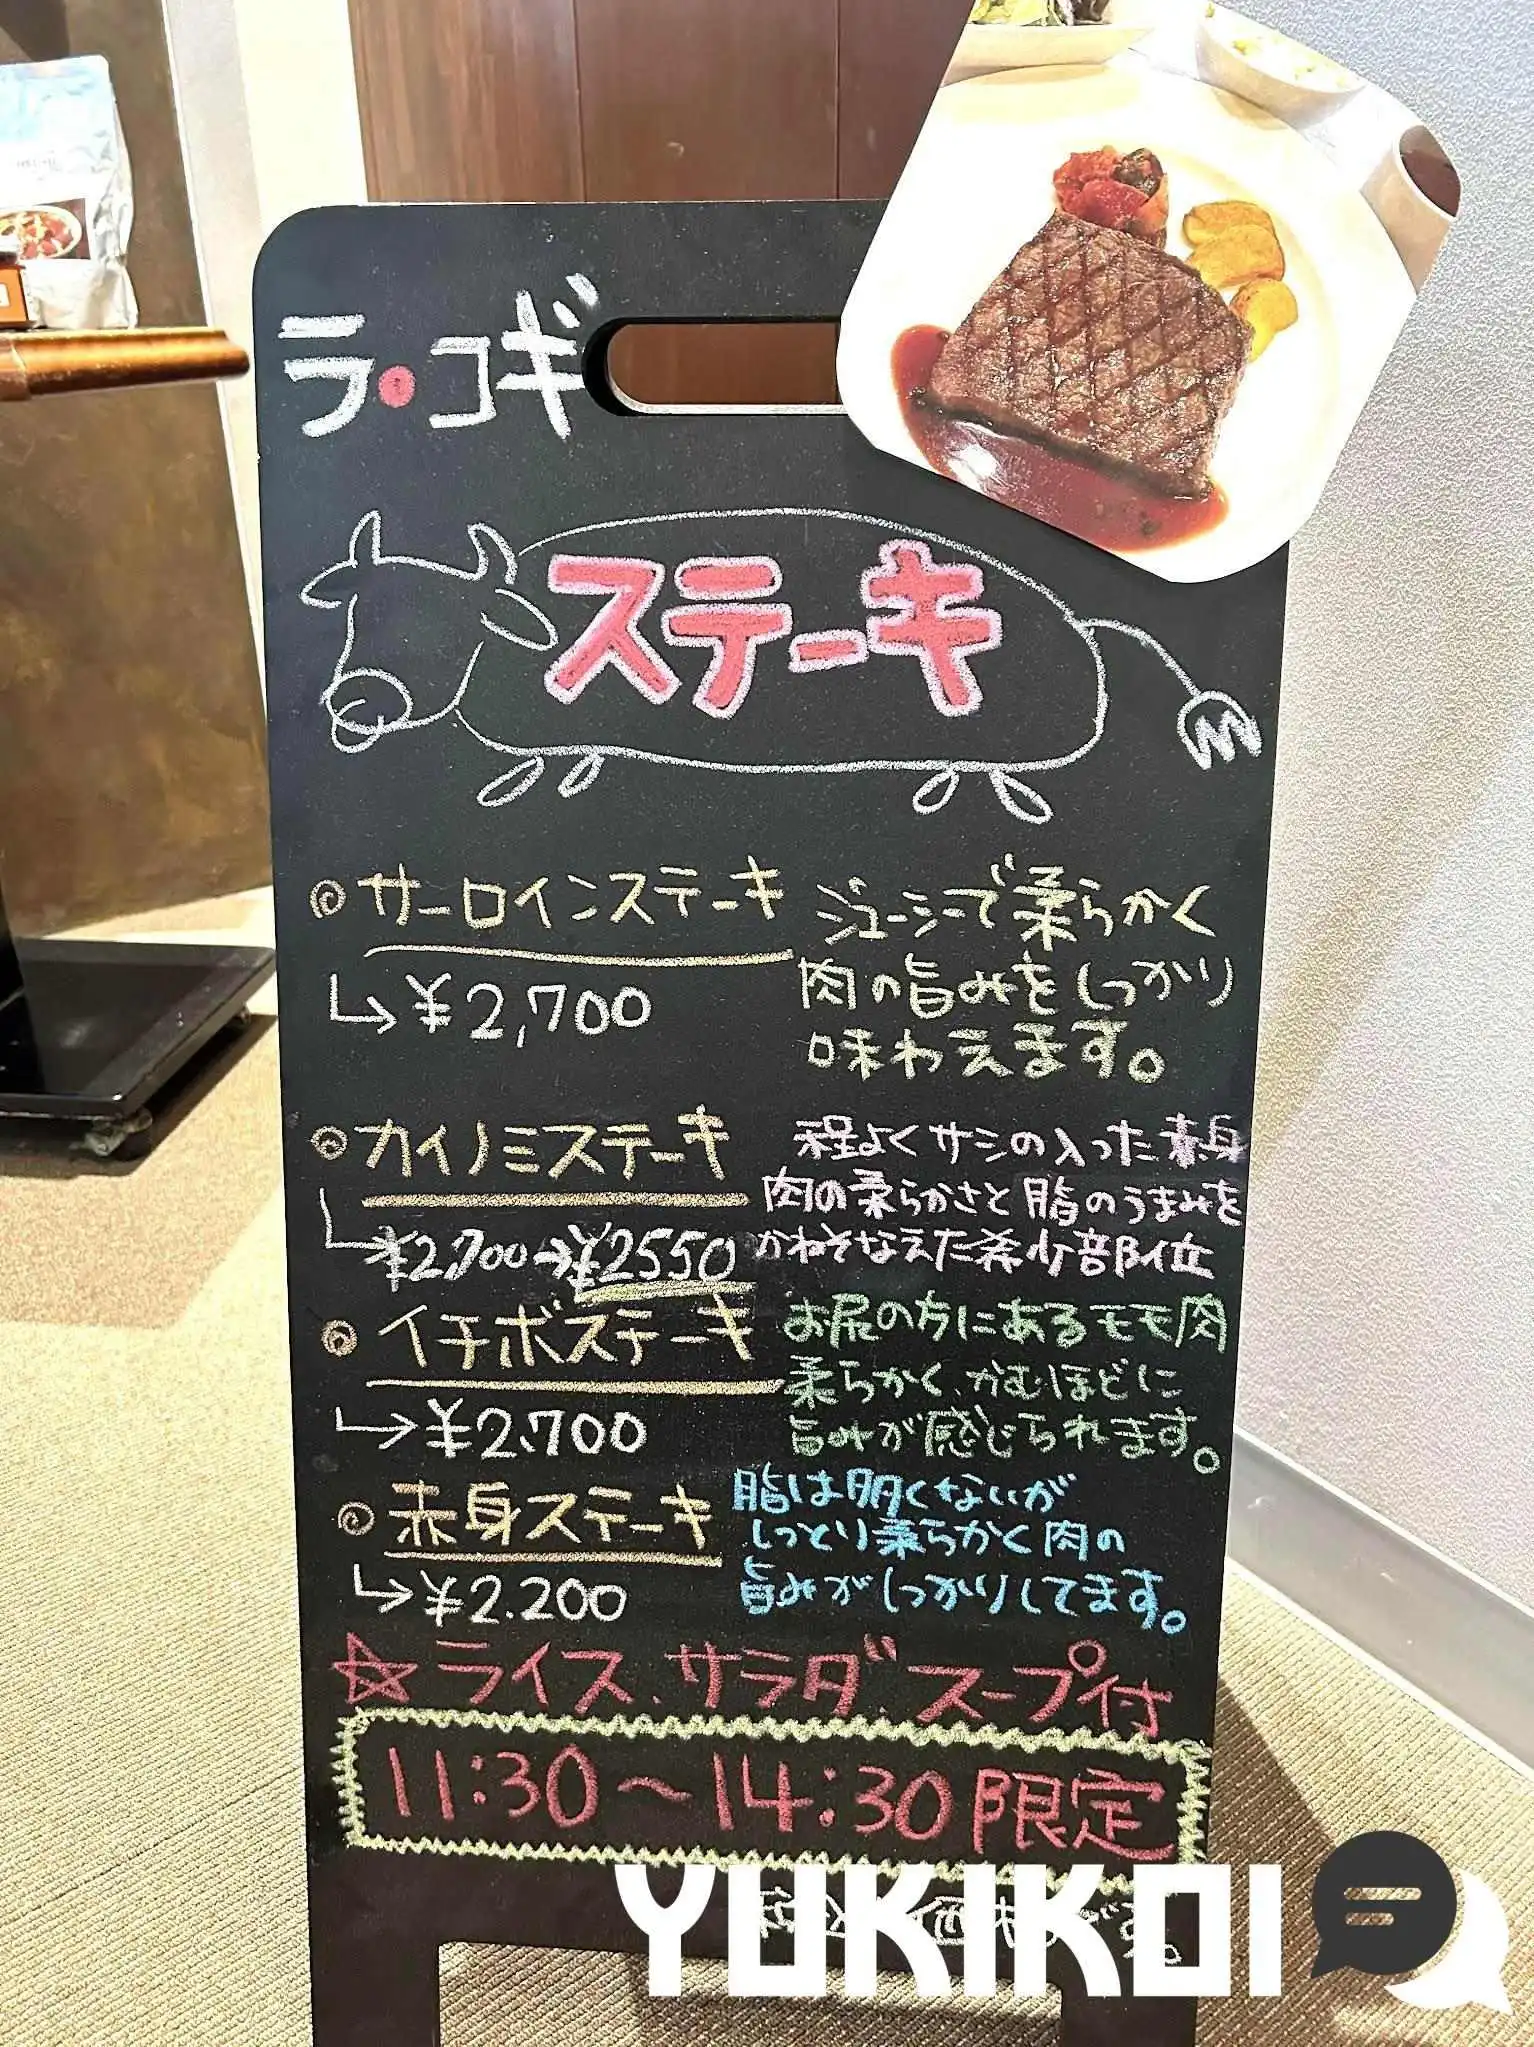 ラ・コギ
ステーキ
サーロインステーキ
¥2,700
ジューシーで柔らかく
肉の旨みをしっかり
味わえます。
カイノミステーキ
¥2,700→¥2550
程よくサシの入った赤身
肉の柔らかさと脂のうまみを
かねそなえた希少部位
イチボステーキ
¥2.700
お尻の方にあるモモ肉
柔らかく、かむほどに
旨みが感じられます。
赤身ステーキ
¥2.200
脂は多くないが
しっとり柔らかく肉の
旨みがしっかりしてます。
☆ライス、サラダ、スープ付
11:30〜14:30限定
YUKIKOI